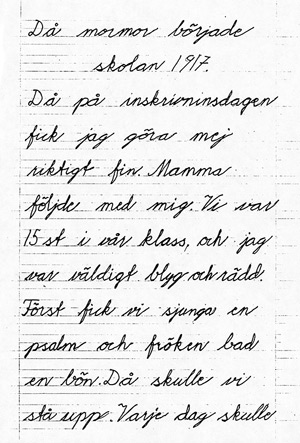 Då mormor började
skolan 1917.
Då på inskrivninsdagen
fick jag göra mej
riktigt fin. Mamma
följde med mig. Vi var
15 st i vår klass, och jag
var väldigt blyg och rädd.
Först fick vi sjunga en
psalm och fröken bad
en bön. Då skulle vi
stå uppe. Varje dag skulle